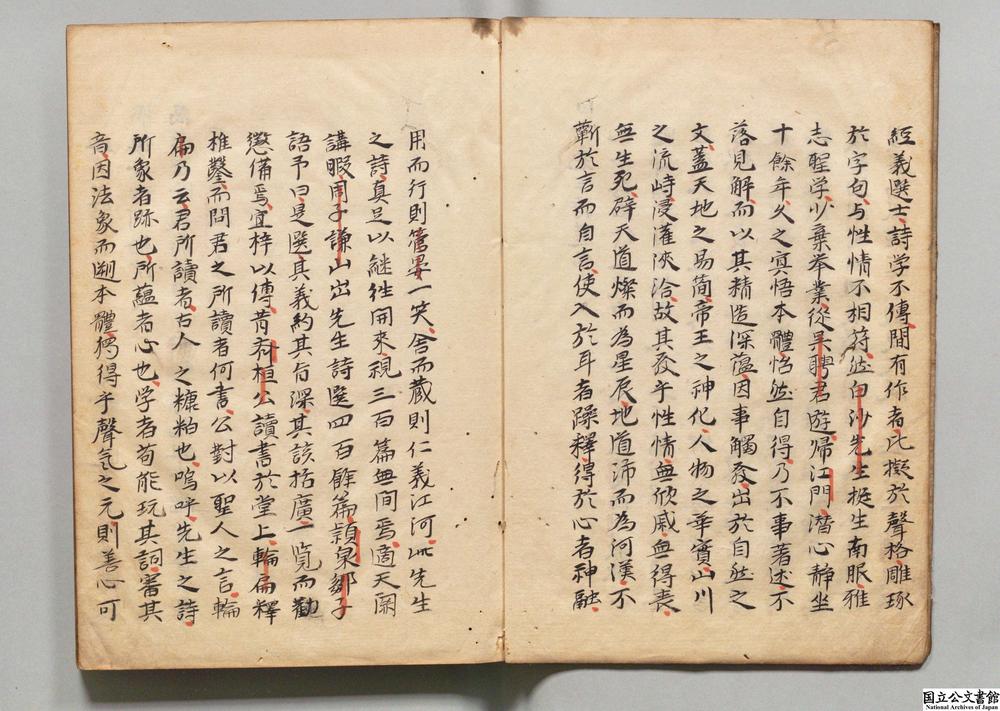 經義選士詩学不傳間有作者比擬於聲格雕琢
於字句与性情不相符然白沙先生挺生南服雅
志聖学少棄举業從吴聘君遊帰江門潛心静坐
十餘年久之㝠悟本體怡然自得乃不事著述不
落見解而以其精造深蕴因事觸发出於自然之
文蓋天地之易简帝王之神化人物之華實山川
之流峙浸灌浹洽故其发乎性情無欣戚無得丧
無生死辟天道燦而為星辰地道沛而為河漢不
蘄於言而自言使入於耳者躁釋得於心者神融
用而行則管晏一笑舍而蔵則仁義江河此先生
之詩真足以継徃開來視三百篇無間焉適天関
講暇周子謙山出先生詩選四百餘篇頴泉鄒子
語予曰是選其義約其㫖深其該括廣一覧而勸
懲備焉宜梓以傳昔斉桓公讀書於堂上輪扁釋
椎鑿而問君之所讀者何書公對以聖人之言輪
扁乃云君所讀者古人之糠粕也嗚呼先生之詩
所象者跡也所蘊者心也学者苟能玩其詞審其
音因法象而遡本體獨得乎聲氣之元則善心可
国立公文書館
National Archives of Japan